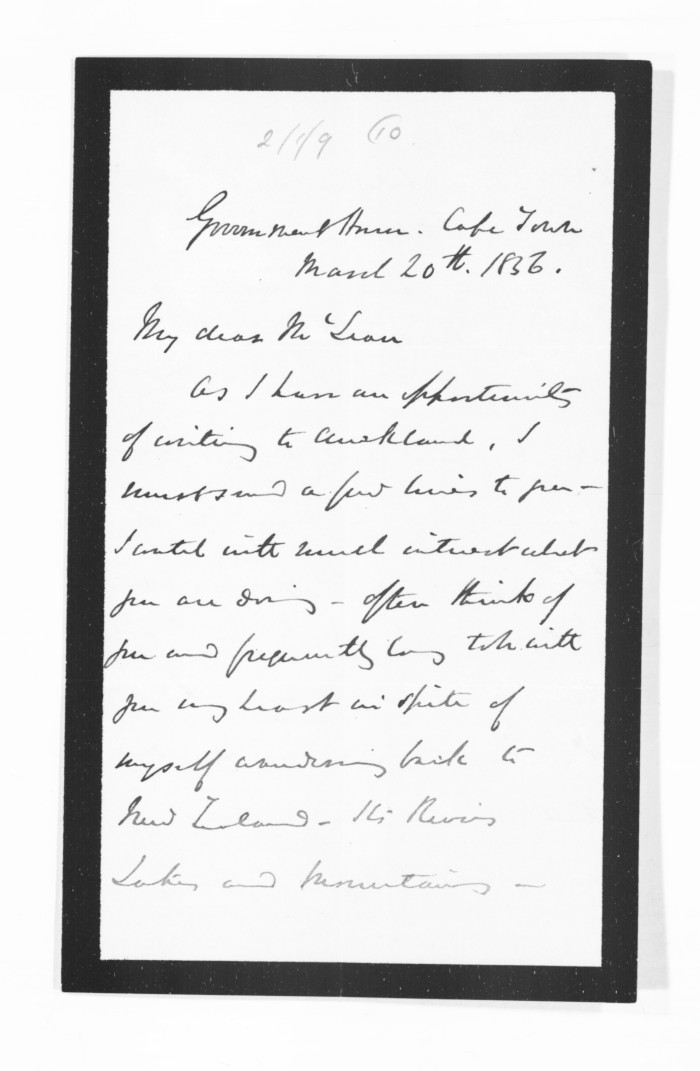 2/1/9 10
Government House. Cape Town
March 20th. 1856.
My dear McLean
As I have an opportunity
of writing to Auckland, I
must send a few lines to you -
I watch with much interest what
you are doing - often think of
you and frequently long to be with
you my heart in spite of
myself wandering back to
New Zealand - Its Rivers
Lakes and Mountains -